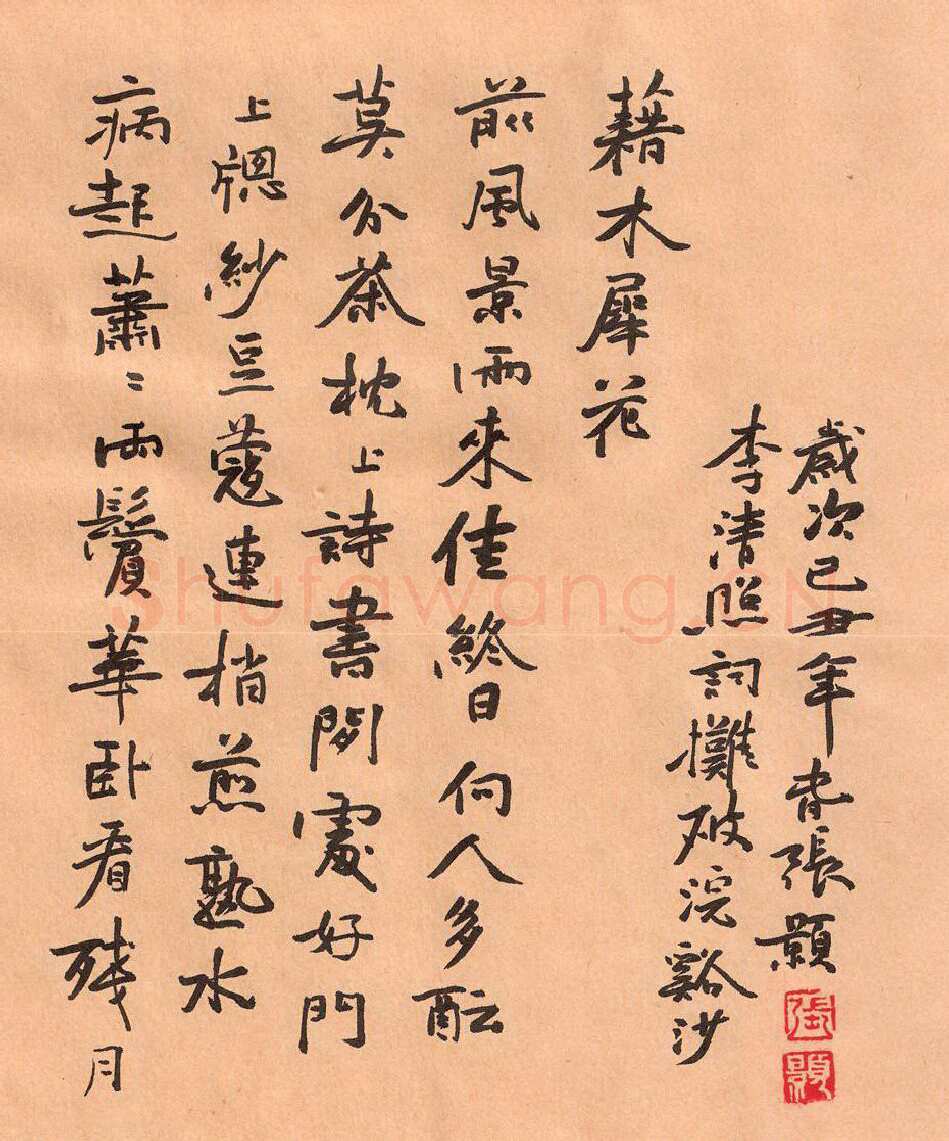 病起蕭〻兩鬢華卧看残月
上牕紗豆蔻連梢煎熟水
莫分茶枕上詩書閒處好門
前風景雨來佳終日向人多醞
藉木犀花
李清照詞攤破浣谿沙
歲次己丑年春張顥
張顥
Shufawang.CN